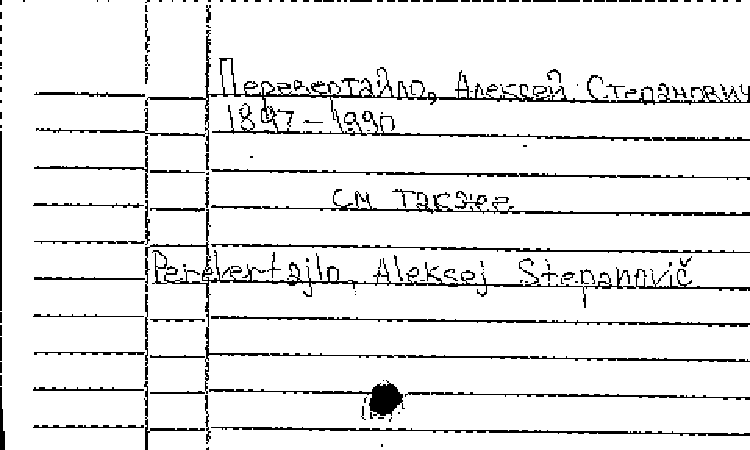 Перевертайло, Алексей Степанович
1897-1990
см также
Perevertajlo, Aleksej Stepanovič